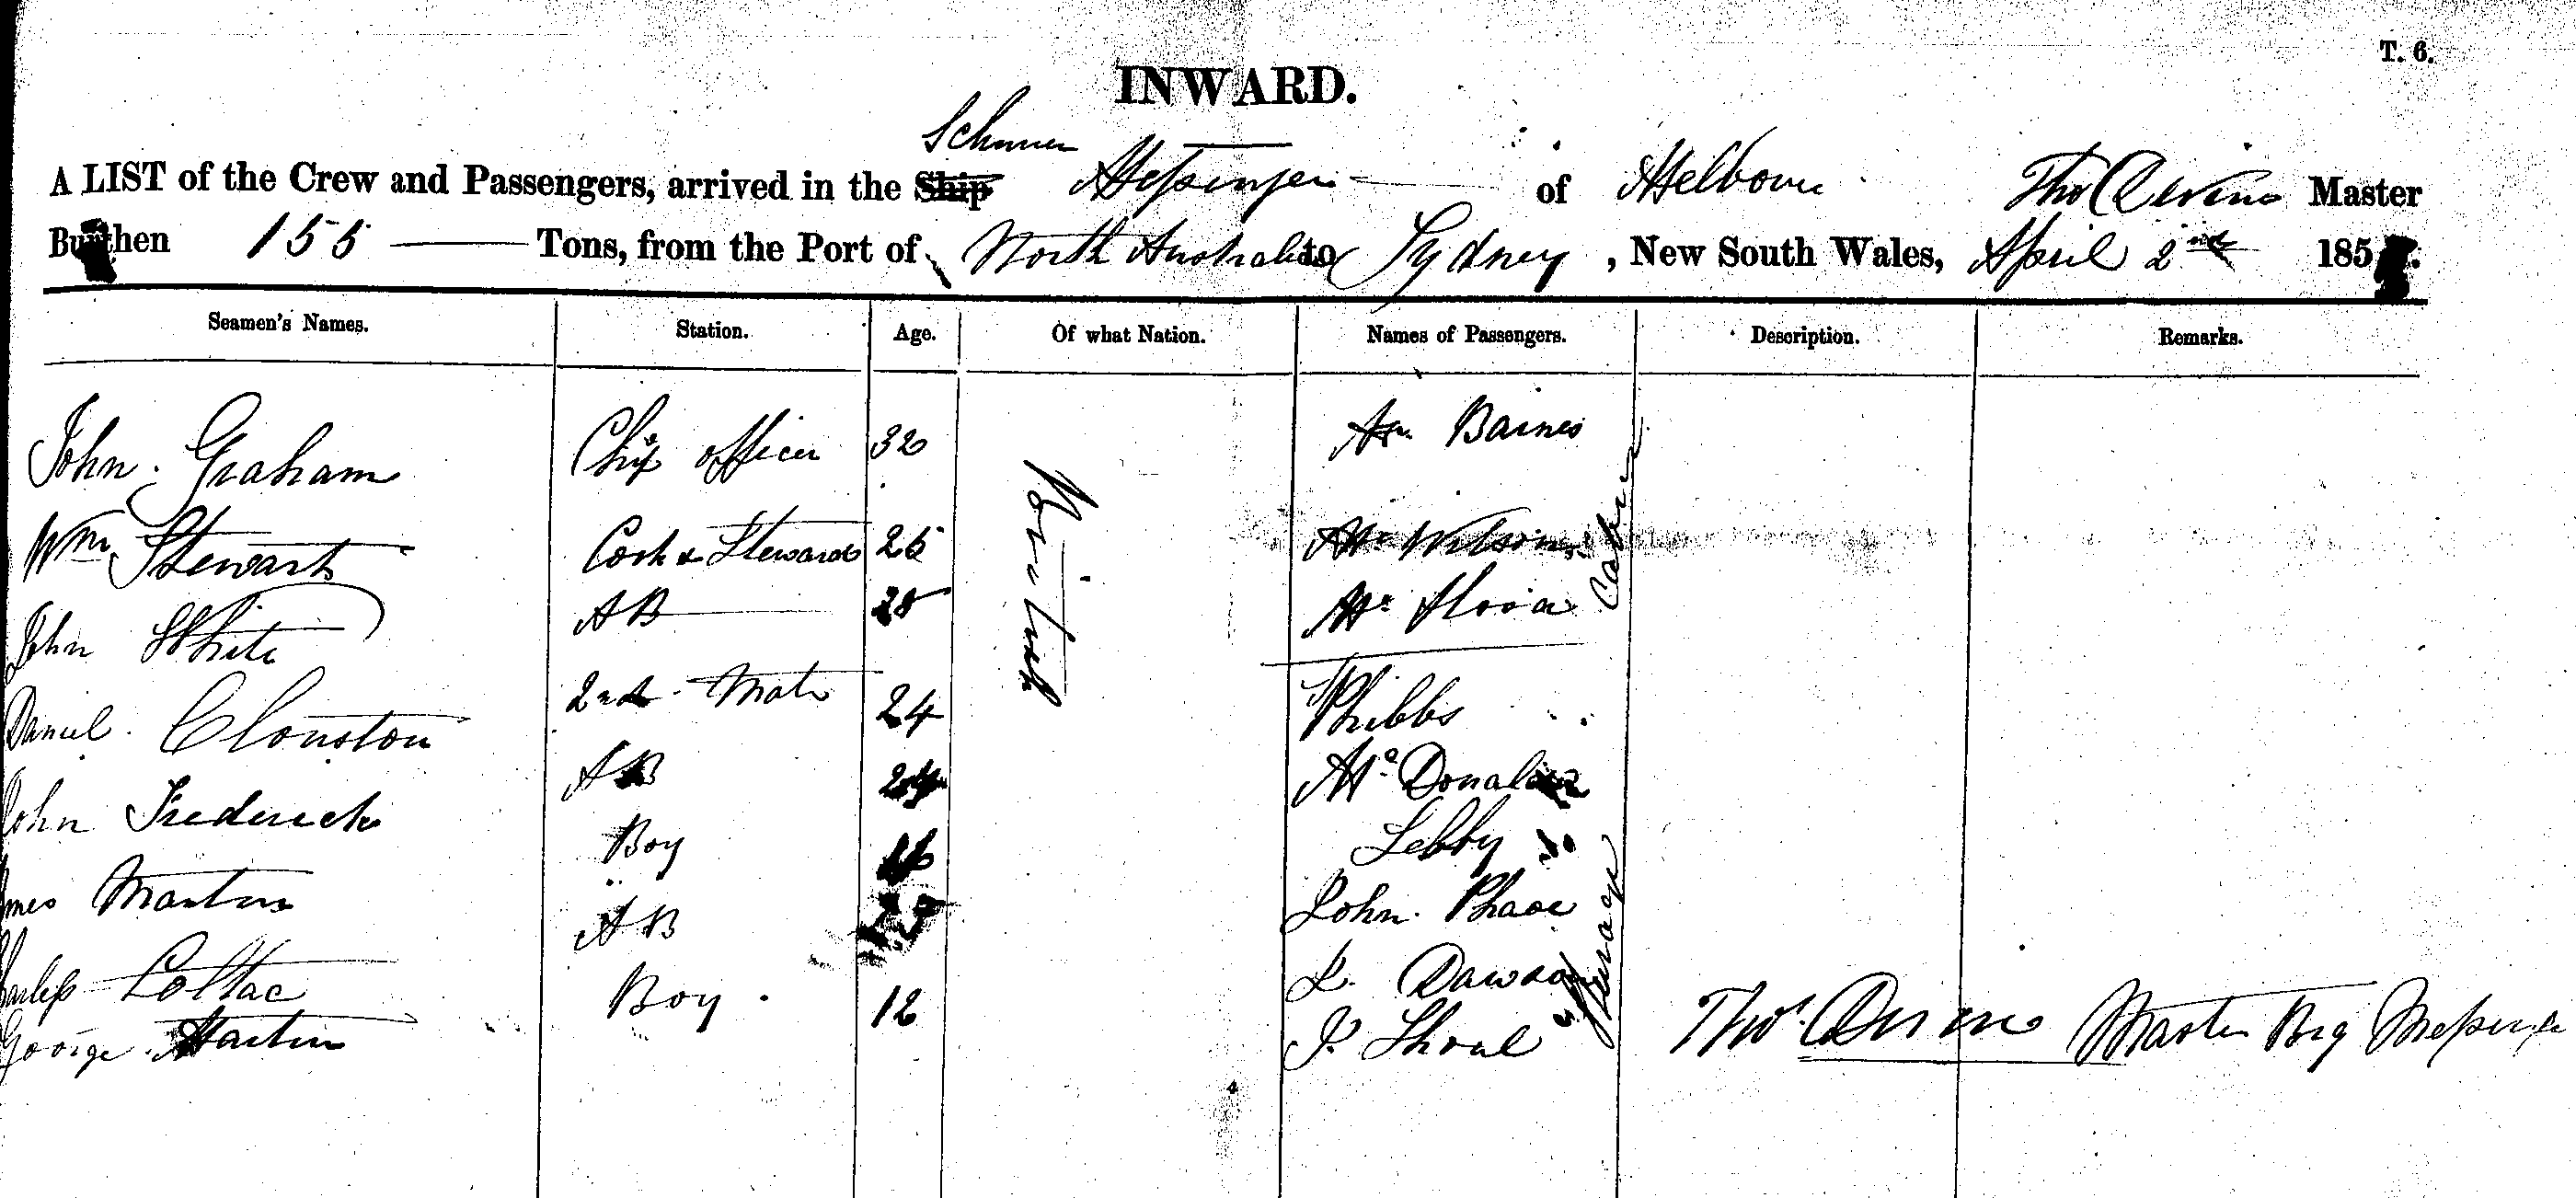 T. 6.
INWARD.
Schooner
A LIST of the Crew and Passengers, arrived in the Ship Messenger of Melbourne Thos Devine Master
Burthen 155 Tons, from the Port of North Australia to Sydney, New South Wales, April 2nd 185
Seamen's Names. Station. Age. Of what Nation. Names of Passengers. Description. Remarks.
John Graham Chief officer 32 British Mr Baines Cabin
Wm Stewart Cook & Steward 25 Mr Wilson
John White AB 28 Mr Flood
Daniel Clouston 2nd Mate 24 Phibbs
John Frederick AB 24 McDonald
James Martin Boy 16 Selby
Charles AB John Steerage
George Martin Boy 12 L. Dawson
J.
Thos. Devine Master Brig Messenger